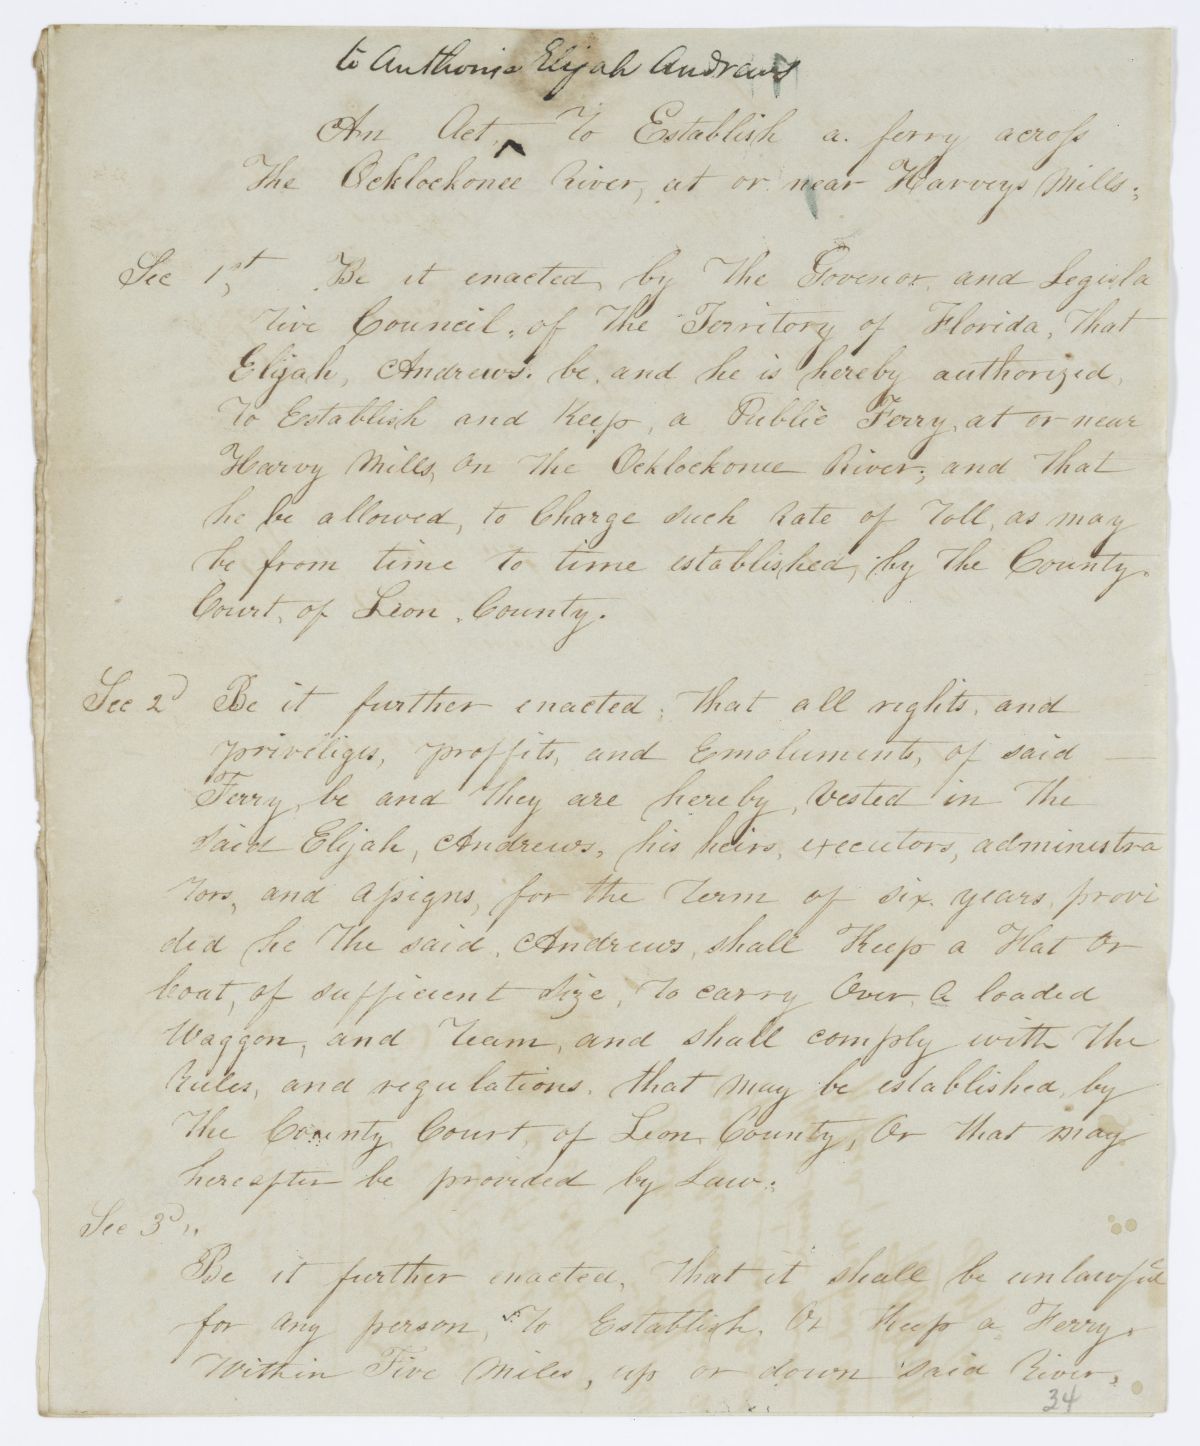 to Authorise Elijah Andrews
An Act, ^ To Establish a. ferry across
The Ocklockonee River, at or near Harveys Mills;
Sec 1st, Be it enacted, by The Govenor, and Legisla
tive Council, of The Territory of Florida, That
Elijah, Andrews. be, and he is hereby authorized,
To Establish and Keep, a Public Ferry, at or near
Harvy Mills, On The Ocklockonee River; and That
he be allowed, to Charge such Rate of Toll, as may
be from time to time established, by The County.
Court, of Leon, County.
Sec 2d Be it further enacted, That all rights, and
priviliges, proffits, and Emoluments, of said —
Ferry, be and They are hereby, Vested in The
Said Elijah, Andrews, his heirs, executors, administra
tors, and assigns, for the Term of six. years, provi
ded he The said, Andrews, shall Keep a Flat Or
boat, of sufficient Size, To carry Over, a loaded
Waggon, and Team, and shall comply with The
Rules, and regulations. that may be established, by
The County Court, of Leon County, Or That may
hereafter be provided by Law;
Sec 3d,,
Be it further enacted, That it shall be unlawful
for any person, To Establish, Or Keep a Ferry,
Within Five Miles, up or down said River,
34